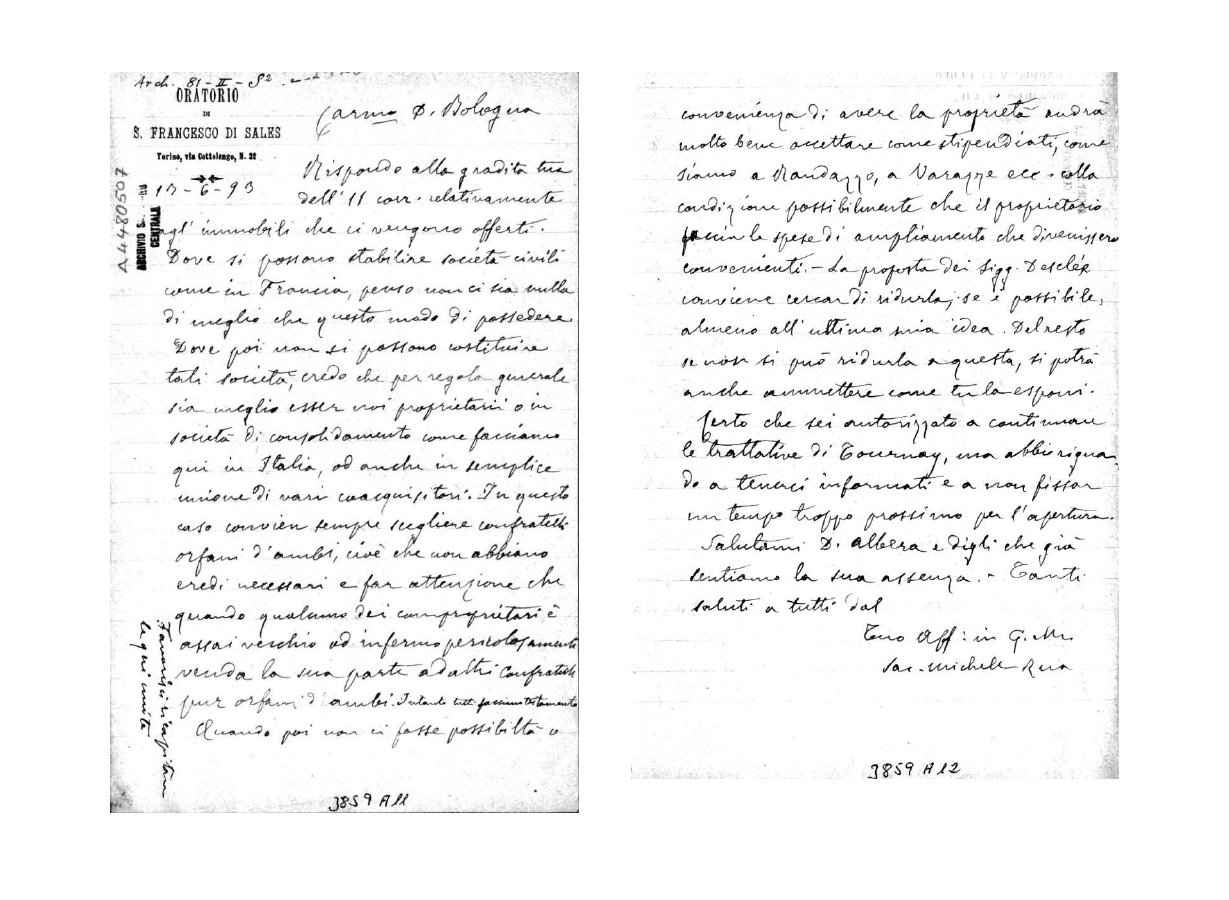 Arch. 81-II-S2.
ORATORIO
DI
S. FRANCESCO DI SALES
Torino, via Cottolengo, N. 32
13-6-93
A4480507
ARCHIVIO S.
CENTRALE
Carmo D. Bologna
Rispondo alla gradita tua
dell'11 corr. relativamente
agl' immobili che ci vengono offerti.
Dove si possono stabilire società civili
come in Francia, penso non ci sia nulla
di meglio che questo modo di possedere.
Dove poi non si possono costituire
tali società, credo che per regola generale
sia meglio esser noi proprietarii o in
società di consolidamento come facciamo
qui in Italia, od anche in semplice
unione di varii coacquisitori. In questo
caso convien sempre scegliere confratelli
orfani d'ambi, cioè che non abbiano
eredi necessari e far attenzione che
quando qualcuno dei comproprietari è
assai vecchio od infermo pericolosamente
venda la sua parte ad altri confratelli
pur orfani d'ambi. Intanto tutti facciano testamento
Quando poi non ci fosse possibiltà o
Favorisci ricapitare
le qui unite
3859 A11
convenienza di avere la proprietà andrà
molto bene accettare come stipendiati, come
siamo a Randazzo, a Varazze ecc. colla
condizione possibilmente che il proprietario
faccia le spese di ampliamento che divenissero
convenienti. - La proposta dei Sigg. Desclée
conviene cercar di ridurla, se è possibile,
almeno all'ultima mia idea. Del resto
se non si può ridurla a questa, si potrà
anche ammettere come tu la esponi.
Certo che sei autorizzato a continuare
le trattative di Tournay, ma abbi riguar-
do a tenerci informati e a non fissar
un tempo troppo prossimo per l'apertura.
Salutami D. Albera e digli che già
sentiamo la sua assenza. - Tanti
saluti a tutti dal
Tuo Aff: in G. e M.
Sac. Michele Rua
3859 A12